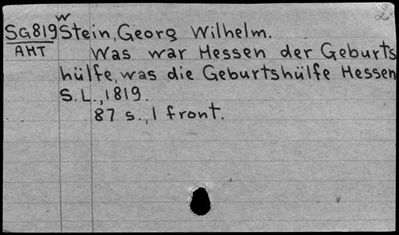 2
w
SG819 Stein, Georg Wilhelm.
AHT Was war Hessen der Geburts
hülfe, was die Geburtshülfe Hessen
S.L., 1819.
87 s., 1 front.